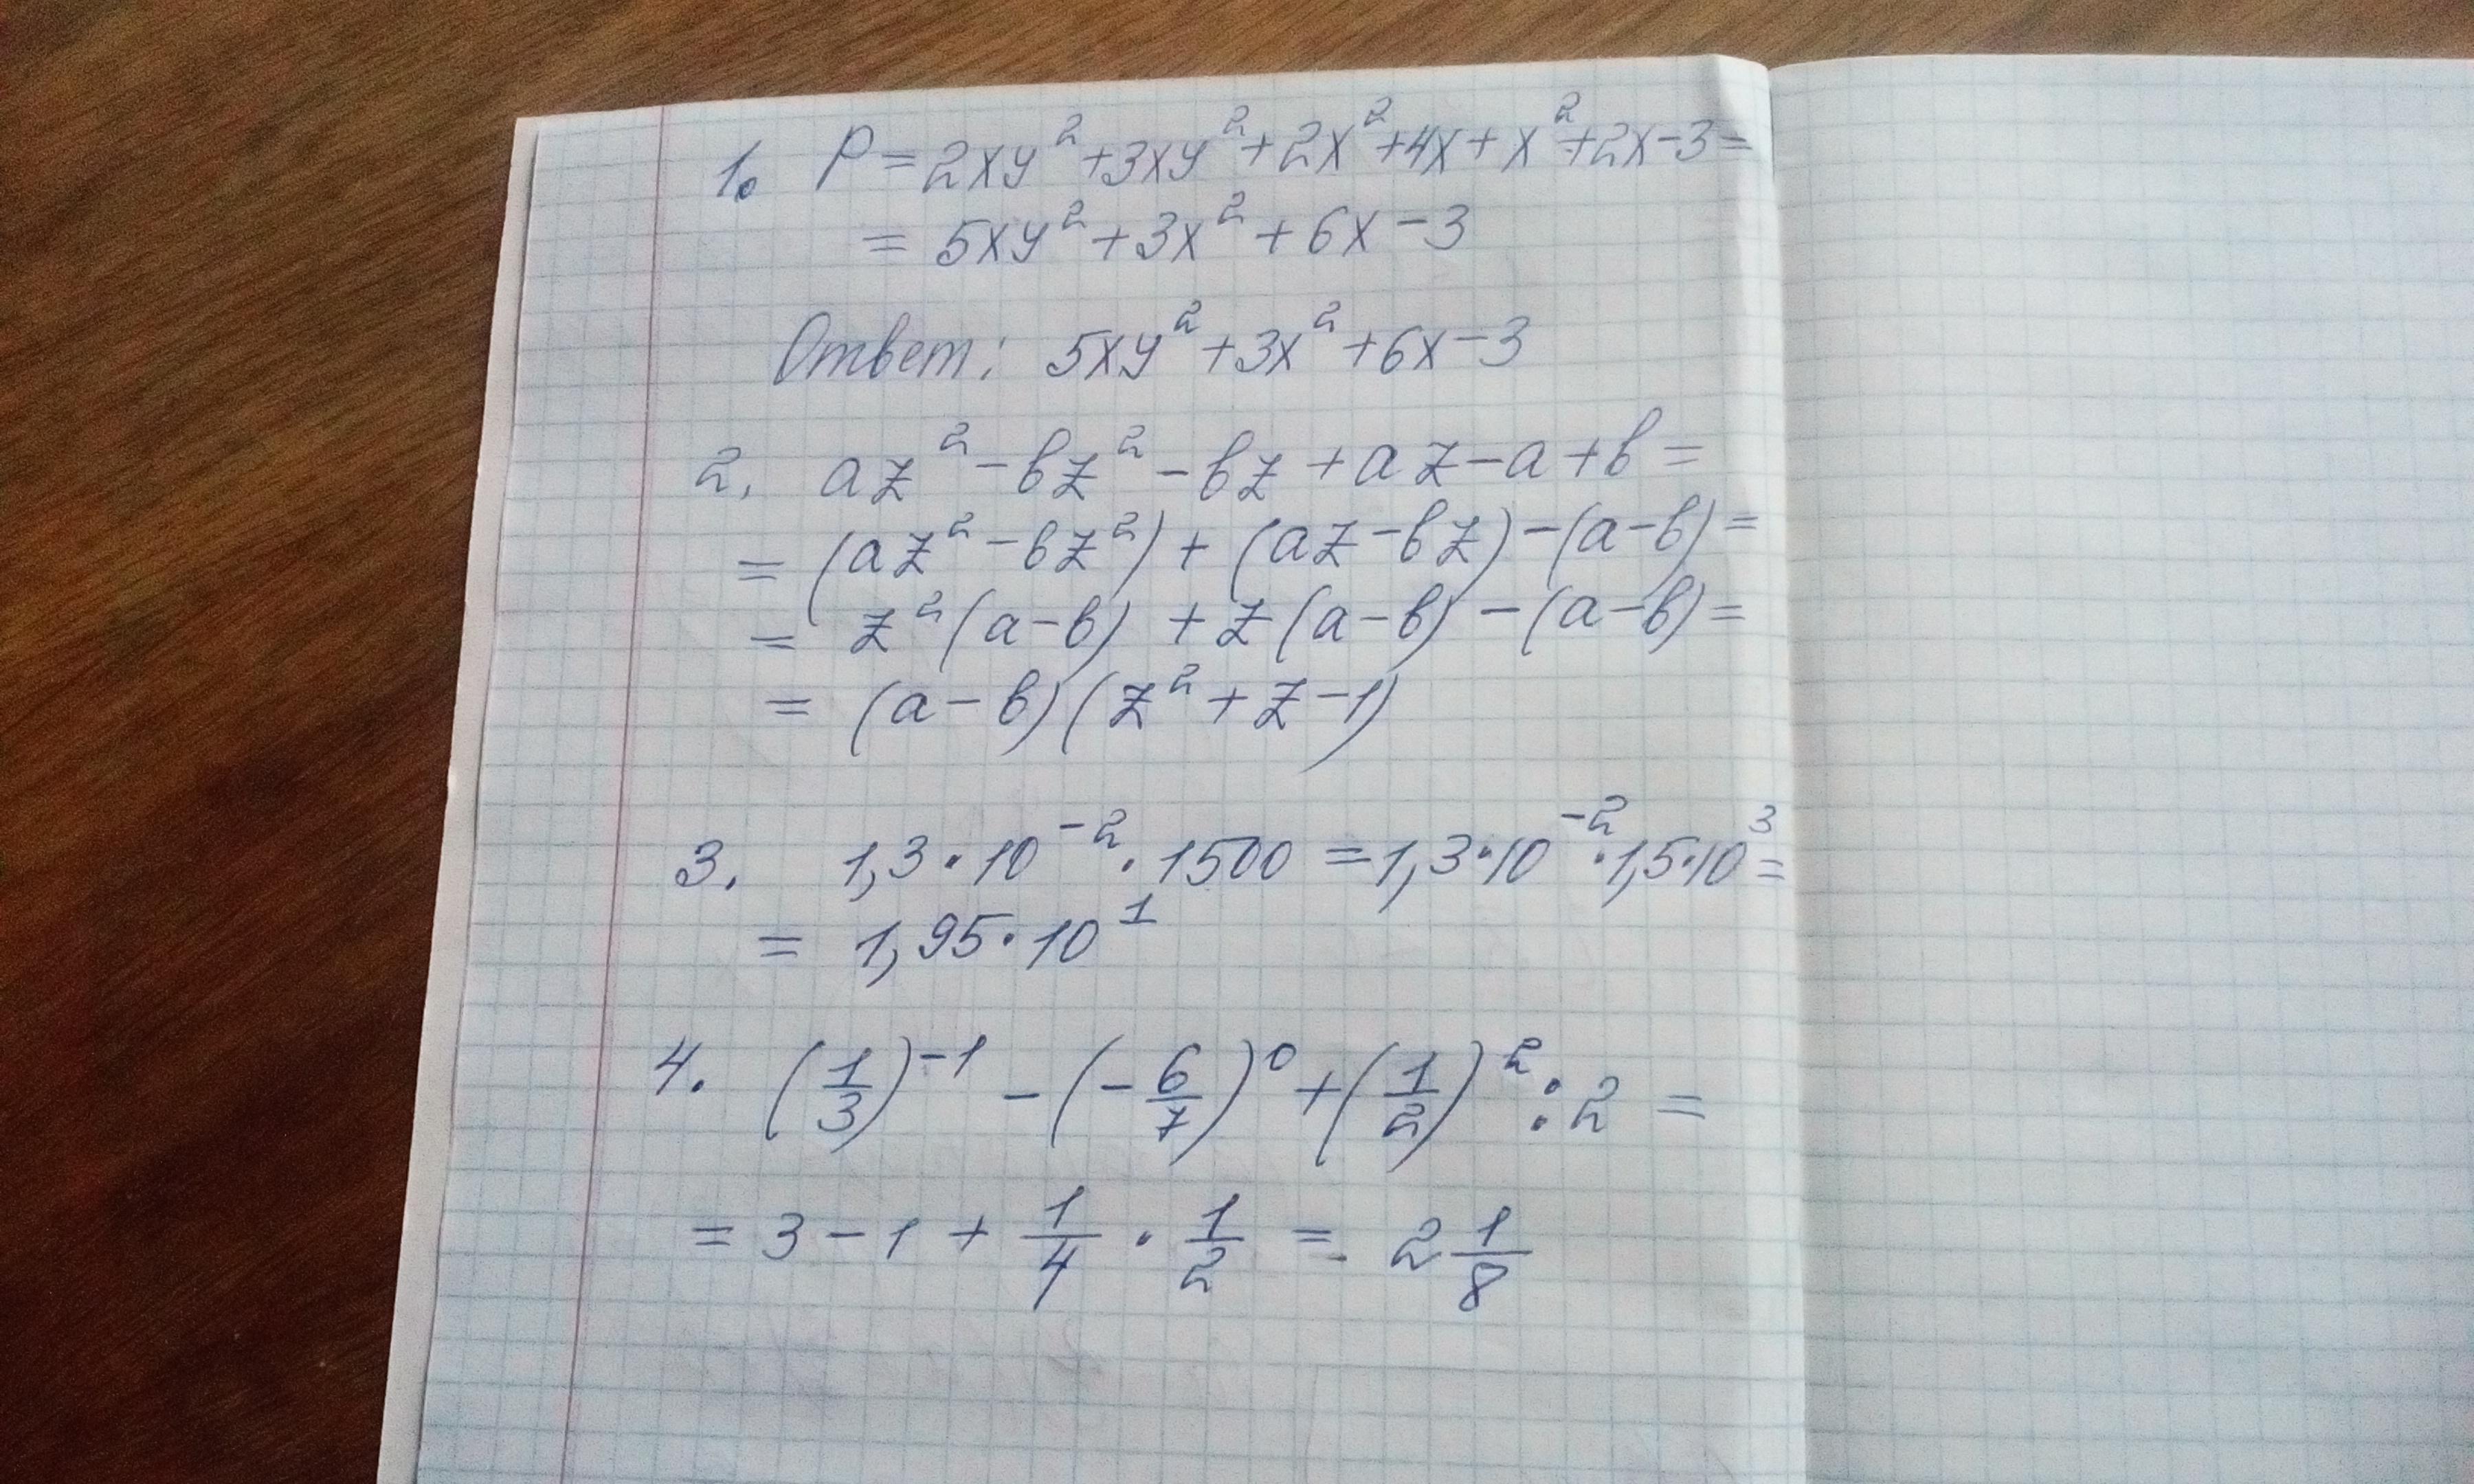 1. P = 2xy² + 3xy² + 2x² + 4x + x² + 2x - 3 =
= 5xy² + 3x² + 6x - 3
Ответ: 5xy² + 3x² + 6x - 3
2. az² - bz² - bz + az - a + b =
= (az² - bz²) + (az - bz) - (a - b) =
= z²(a - b) + z(a - b) - (a - b) =
= (a - b)(z² + z - 1)
3. 1,3 · 10⁻² · 1500 = 1,3 · 10⁻² · 1,5 · 10³ =
= 1,95 · 10¹
4. (1/3)⁻¹ - (-6/7)⁰ + (1/2)² : 2 =
= 3 - 1 + 1/4 · 1/2 = 2 1/8